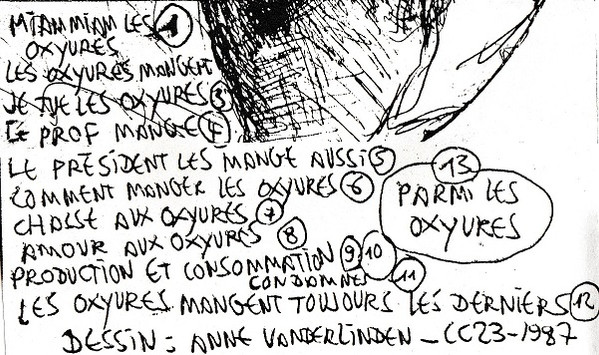 MIAM MIAM LES 1
OXYURES
LES OXYURES MANGENT
JE TUE LES OXYURES 3
LE PROF MANGE 4
LE PRESIDENT LES MANGE AUSSI 5
COMMENT MANGER LES OXYURES 6
CHASSE AUX OXYURES 7
AMOUR AUX OXYURES 8
PRODUCTION ET CONSOMMATION 9 10
CONDAMNES 11
LES OXYURES MANGENT TOUJOURS LES DERNIERS 12
13
PARMI LES
OXYURES
DESSIN : ANNE VANDERLINDEN - CC23-1987